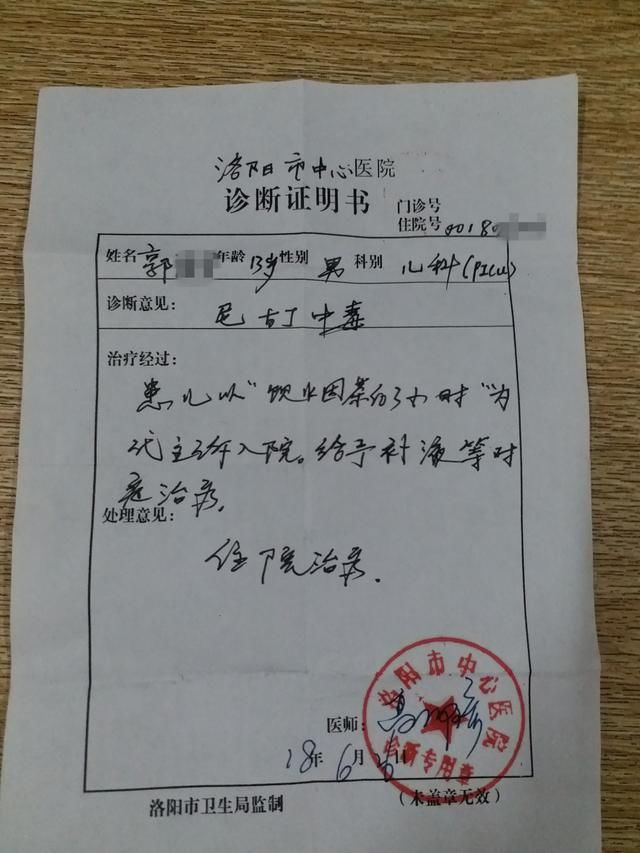 洛阳市中心医院
诊断证明书
门诊号
住院号 00180
姓名 郭 年龄 13岁 性别 男 科别 儿科(PICU)
诊断意见:
尼古丁中毒
治疗经过:
患儿以"饮 3小时"为
代主诉入院。给予补液等对
症治疗。
处理意见:
住院治疗.
洛阳市中心医院
诊断专用章
医师:
18年6月 日
洛阳市卫生局监制
(未盖章无效)